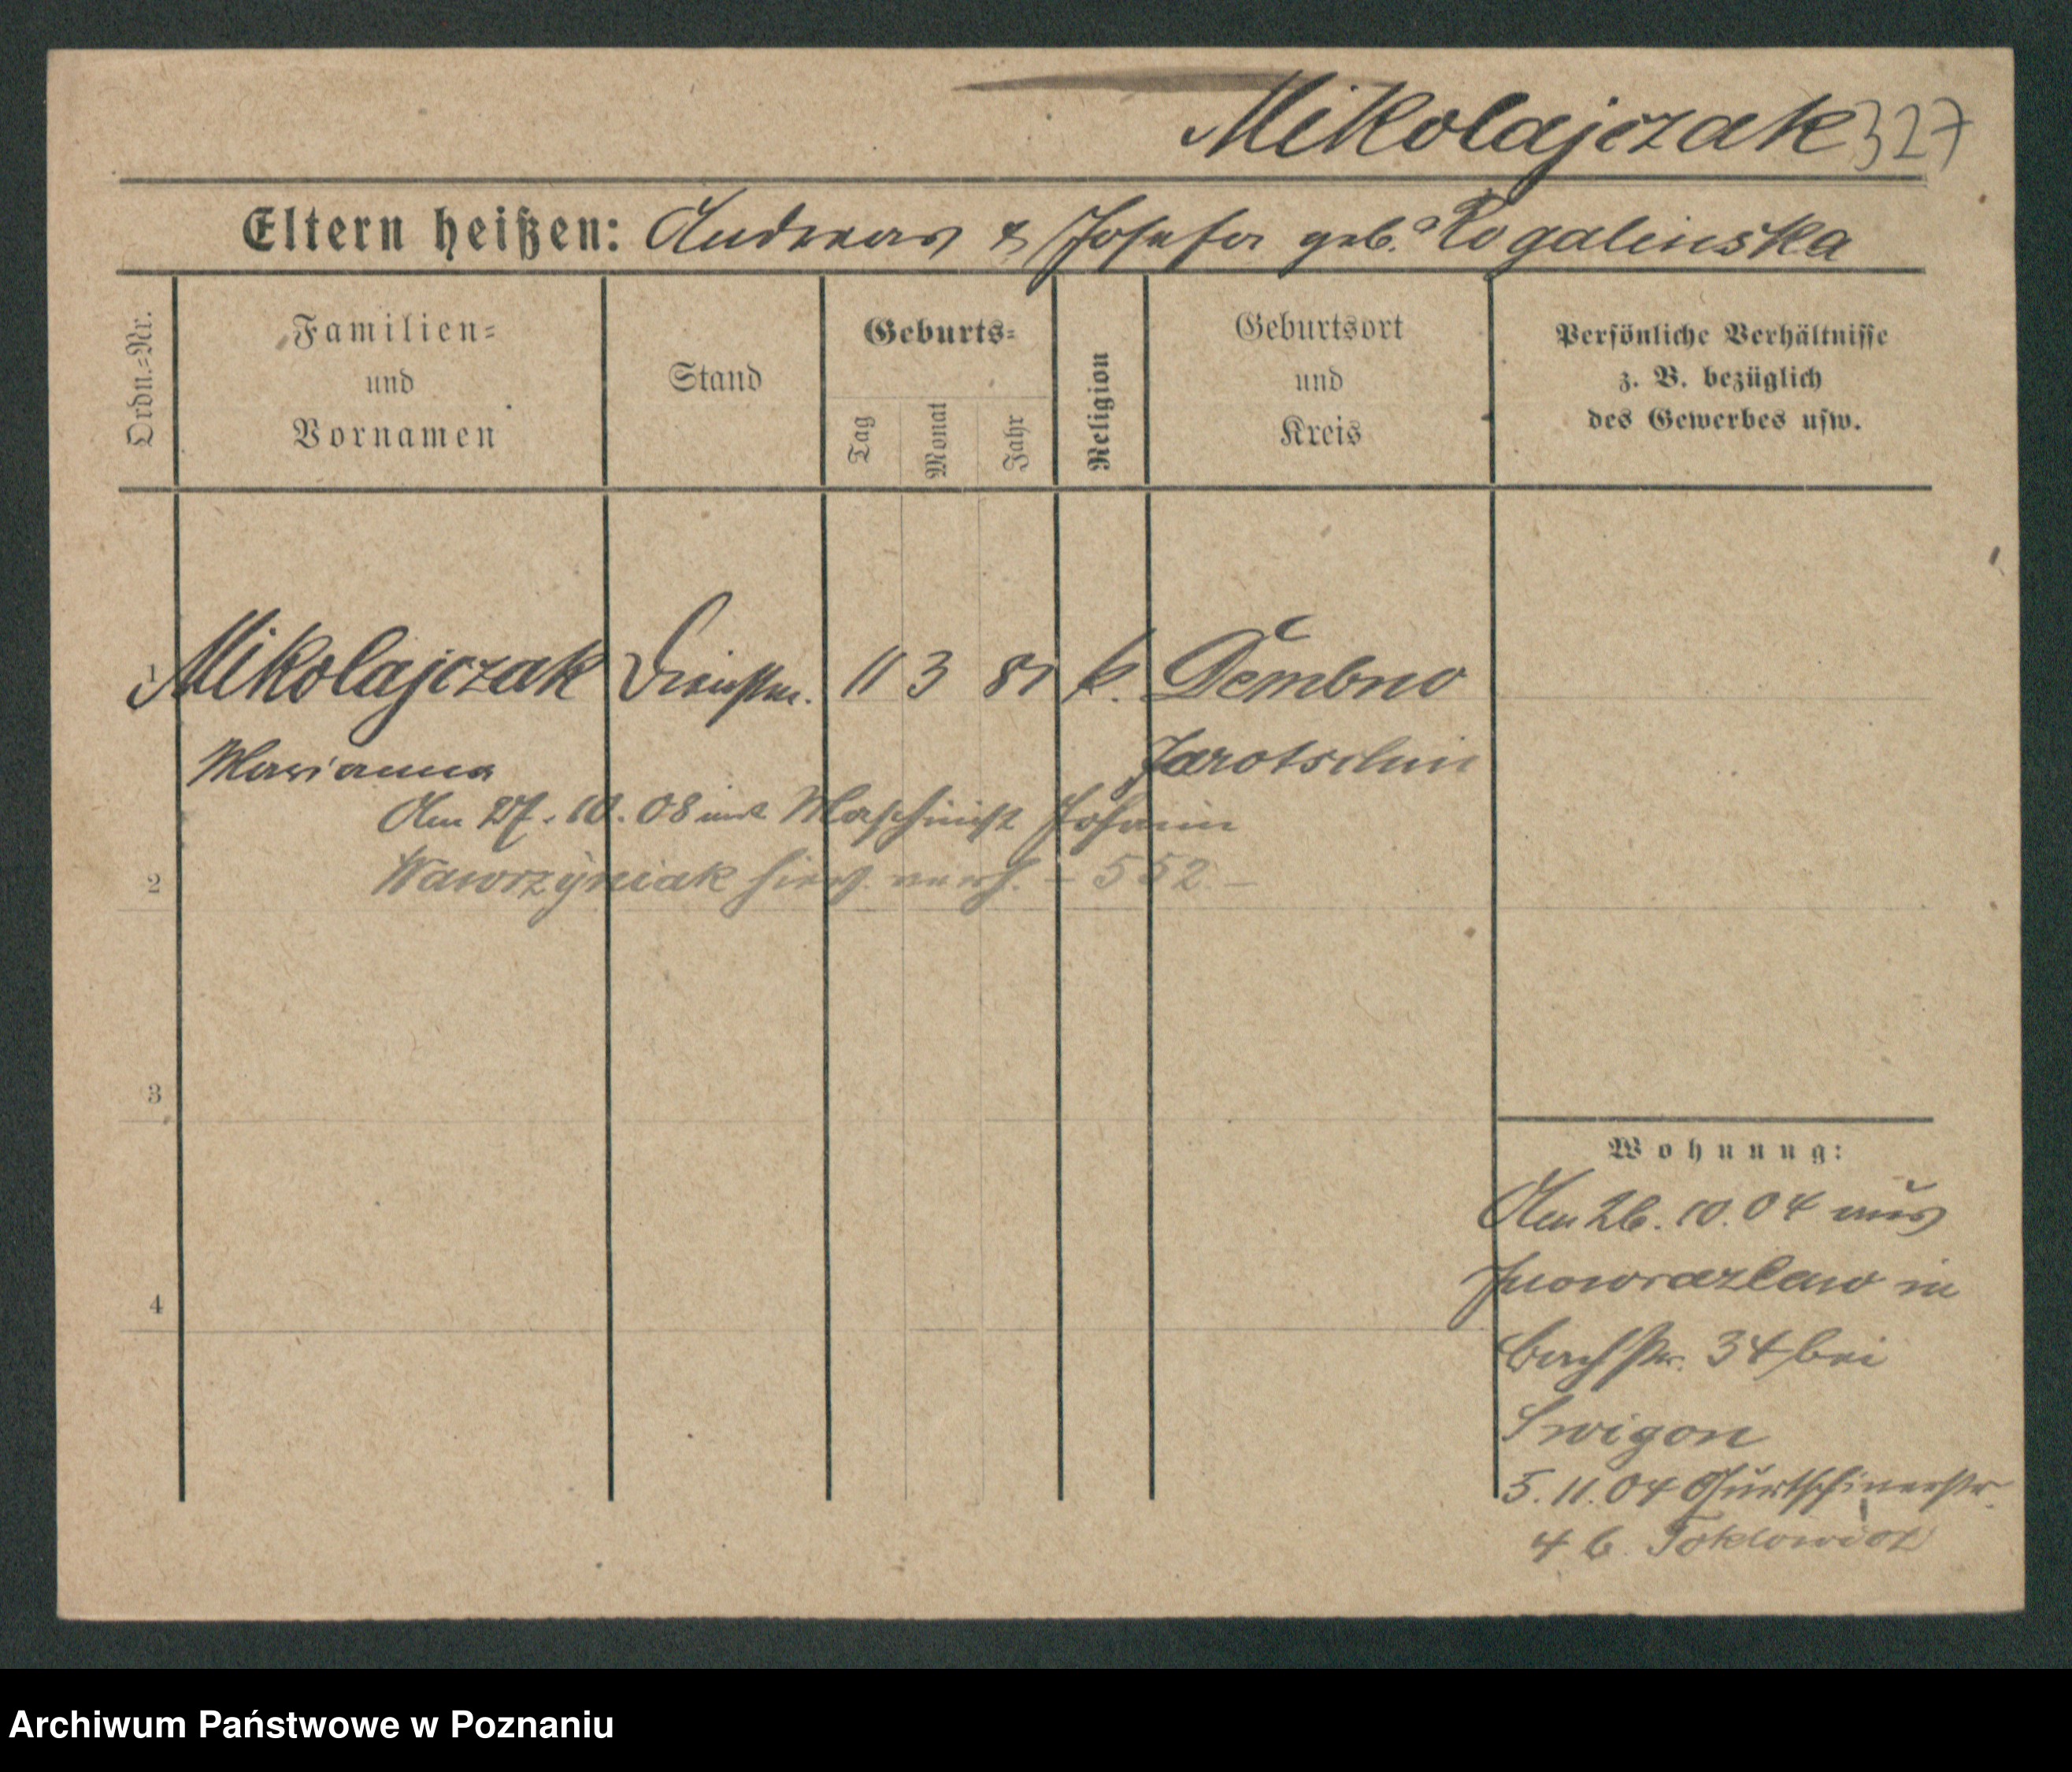 Mikolajczak 327
Eltern heißen: Andreas & Josefa geb. Rogalinska
Ordn.=Nr.
Familien=
und
Vornamen
Stand
Geburts=
Tag
Monat
Jahr
Religion
Geburtsort
und
Kreis
Persönliche Verhältnisse
z. B. bezüglich
des Gewerbes usw.
1 Mikolajczak 11 3 81 k. Dembno
Marianna Jarotschin
Am 27. 10. 08 mit Maschinist Johann
Wawrzyniak hiers. verh. - 552. -
2
3
4
Wohnung:
Am 26. 10. 04 aus
Inowrazlaw in
Bachstr. 34 bei
Swigon
5. 11. 04 Gurtschinerstr.
4 b.
Archiwum Państwowe w Poznaniu